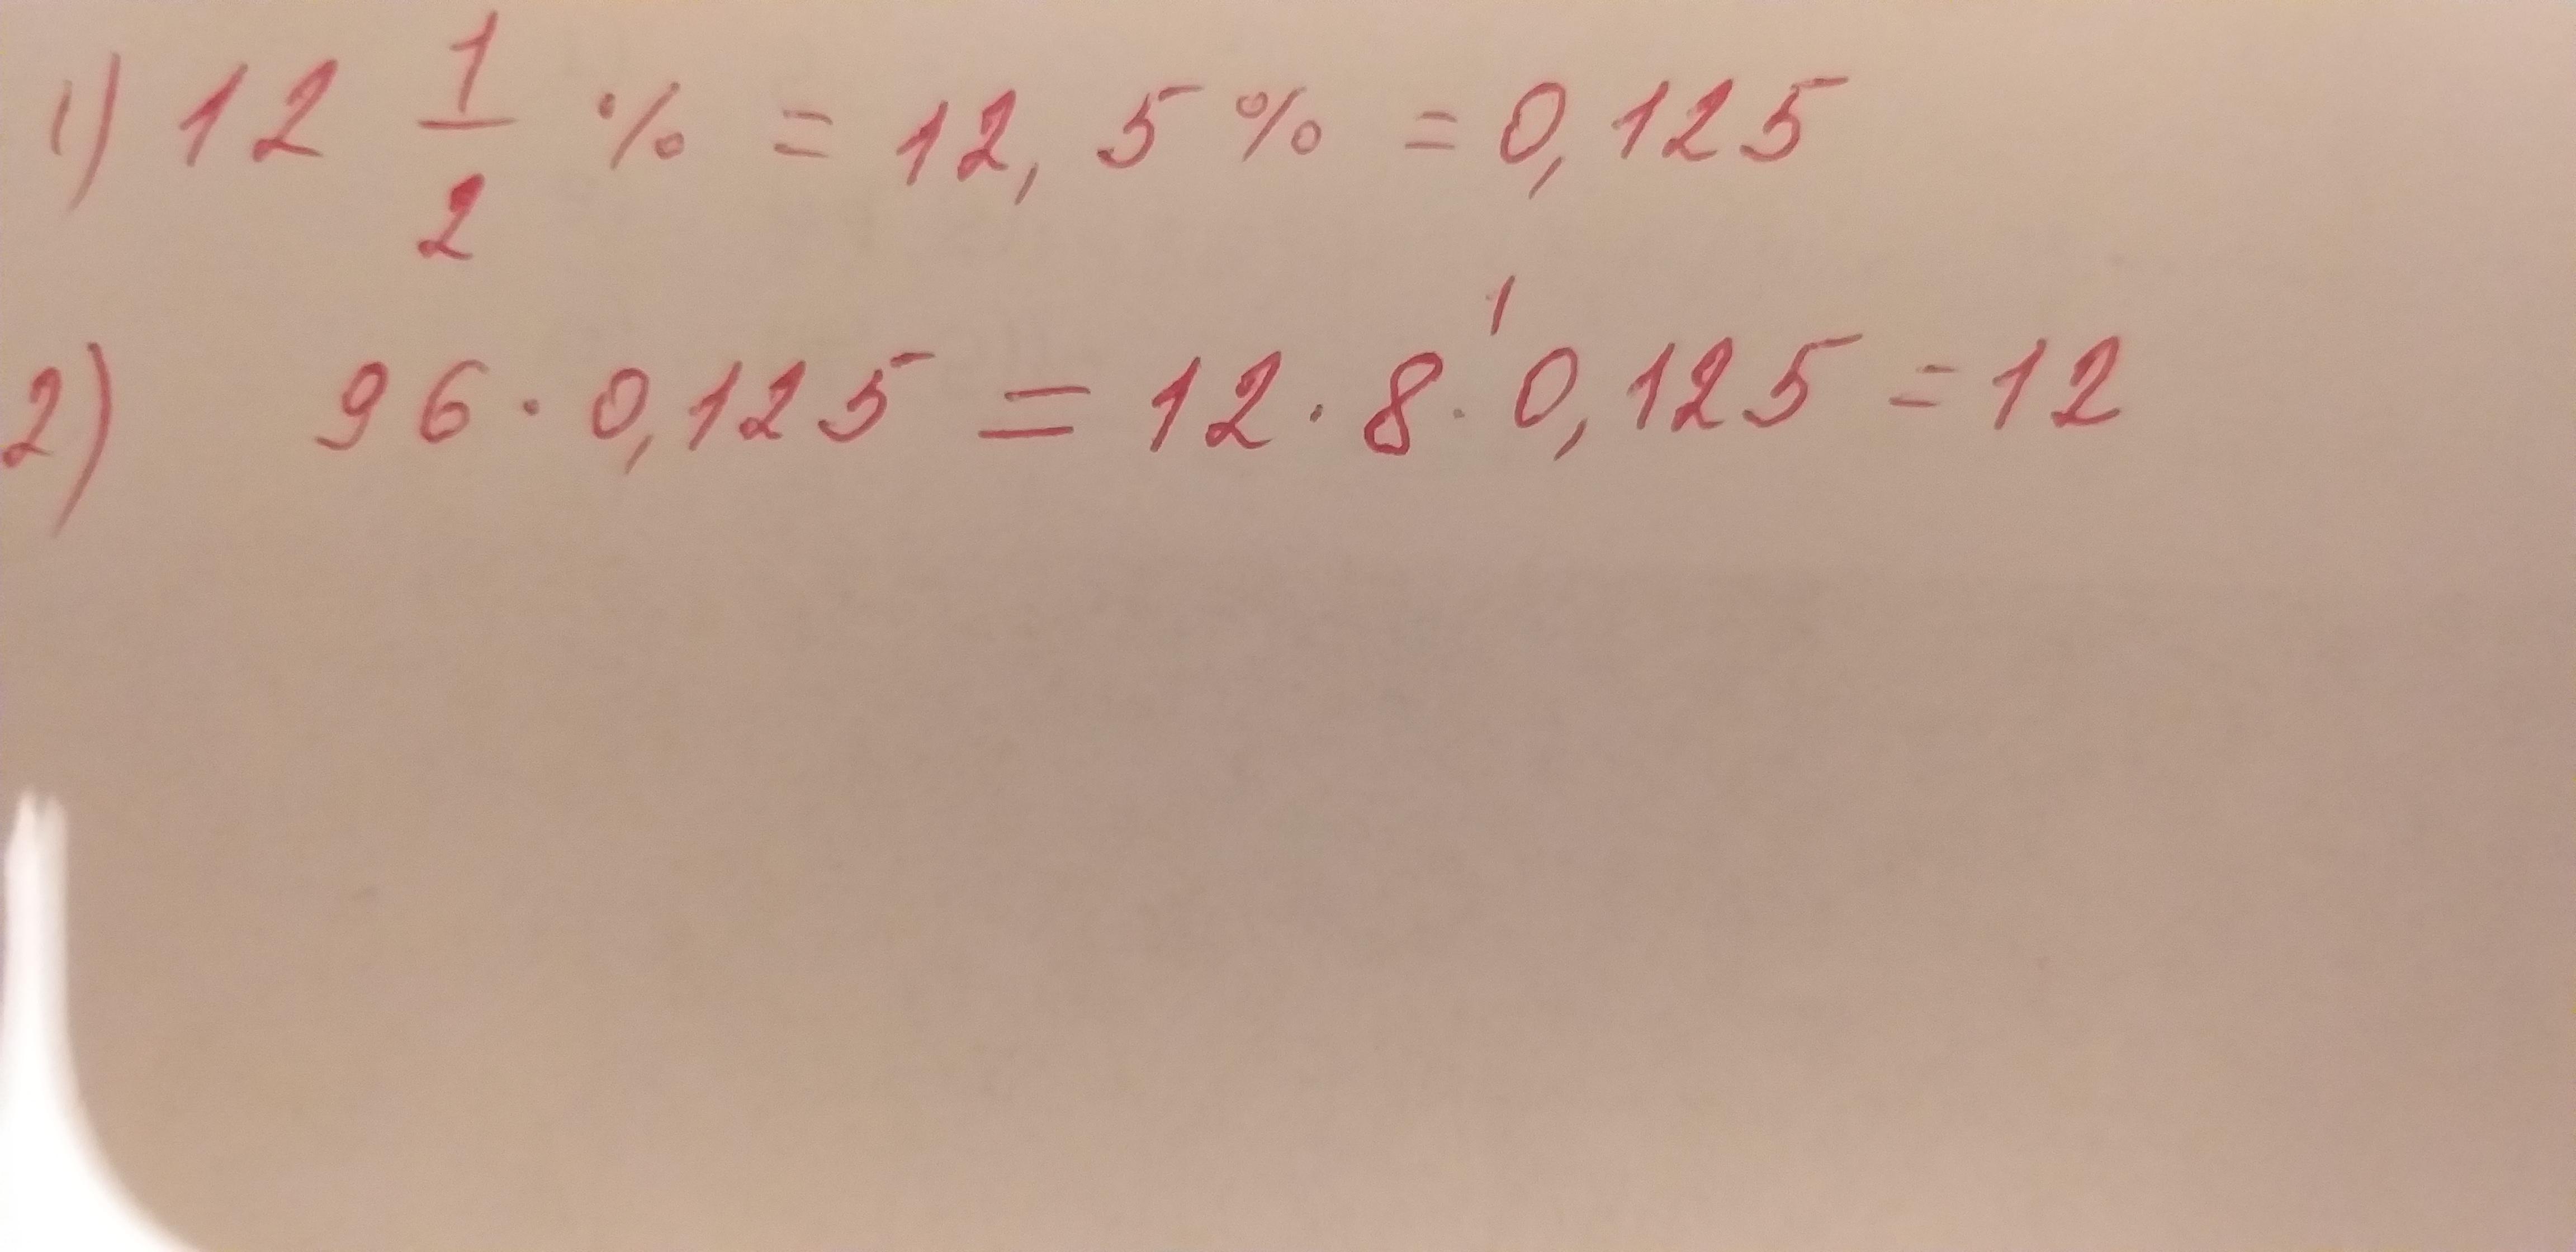 1) 12 1/2 % = 12, 5 % = 0, 125
1
2) 96 · 0,125 = 12 · 8 · 0, 125 = 12